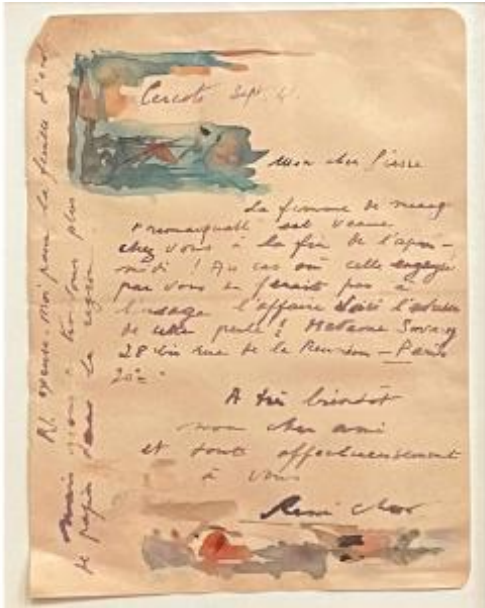 Cereste Sept. 41.
Mon cher Pierre
La femme de menag
"remarquable" est venue
chez vous à la fin de l'après-
midi ! Au cas où celle engagée
par vous ne ferait pas à
l'usage l'affaire voici l'adresse
de cette perle ! Madame
28 bis rue de la Réunion - Paris
20e
A très bientôt
mon cher ami
et tout affectueusement
à vous
René Char
P.S. excusez-moi pour la feuille d'
mais nous n'avons plus
de papier dans la région